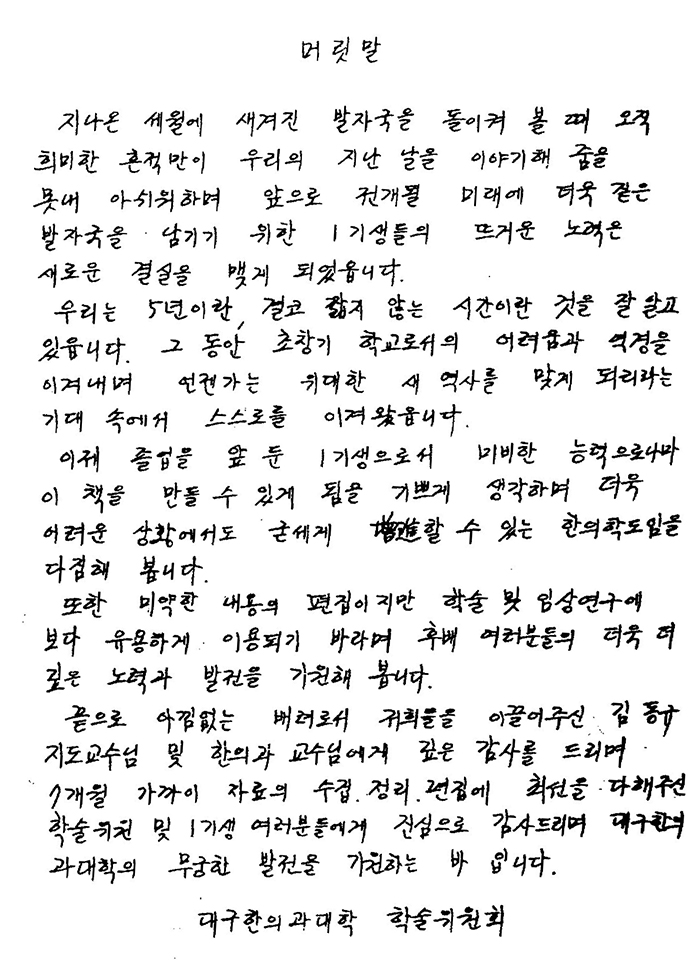 머릿말
지나온 세월에 새겨진 발자국을 돌이켜 볼 때 오직
희미한 흔적만이 우리의 지난 날을 이야기해 줌을
못내 아쉬워하며 앞으로 전개될 미래에 더욱 짙은
발자국을 남기기 위한 1기생들의 뜨거운 노력은
새로운 결실을 맺게 되었읍니다.
우리는 5년이란, 결코 짧지 않는 시간이란 것을 잘 알고
있읍니다. 그 동안 초창기 학교로서의 어려움과 역경을
이겨내며 언젠가는 위대한 새 역사를 맞게 되리라는
기대 속에서 스스로를 이겨왔읍니다.
이제 졸업을 앞 둔 1기생으로서 미비한 능력으로나마
이 책을 만들 수 있게 됨을 기쁘게 생각하며 더욱
어려운 상황에서도 굳세게 增進할 수 있는 한의학도임을
다짐해 봅니다.
또한 미약한 내용의 편집이지만 학술 및 임상연구에
보다 유용하게 이용되기 바라며 후배 여러분들의 더욱 더
깊은 노력과 발전을 기원해 봅니다.
끝으로 아낌없는 배려로서 저희들을 이끌어주신 김동규
지도교수님 및 한의과 교수님에게 깊은 감사를 드리며
7개월 가까이 자료의 수집.정리.편집에 최선을 다해주신
학술위원 및 1기생 여러분들에게 진심으로 감사드리며 대구한의
과대학의 무궁한 발전을 기원하는 바 입니다.
대구한의과대학 학술위원회